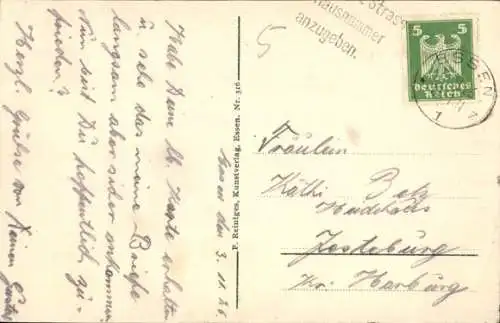 Straß
Hausnummer
anzugeben.
5
5 5
Deutsches
Reich
ESSEN
Essen den 3. 11. 26.
Habe Deine lb. Karte erhalten
u. sehe das meine Briefe
langsam aber sicher ankommen
Nun bist Du hoffentlich zu-
frieden?
Herzl. Grüße von Deinem
P. Reintges, Kunstverlag, Essen. Nr. 316
Fräulein
Käthi
Jesteburg
Kr. Harburg